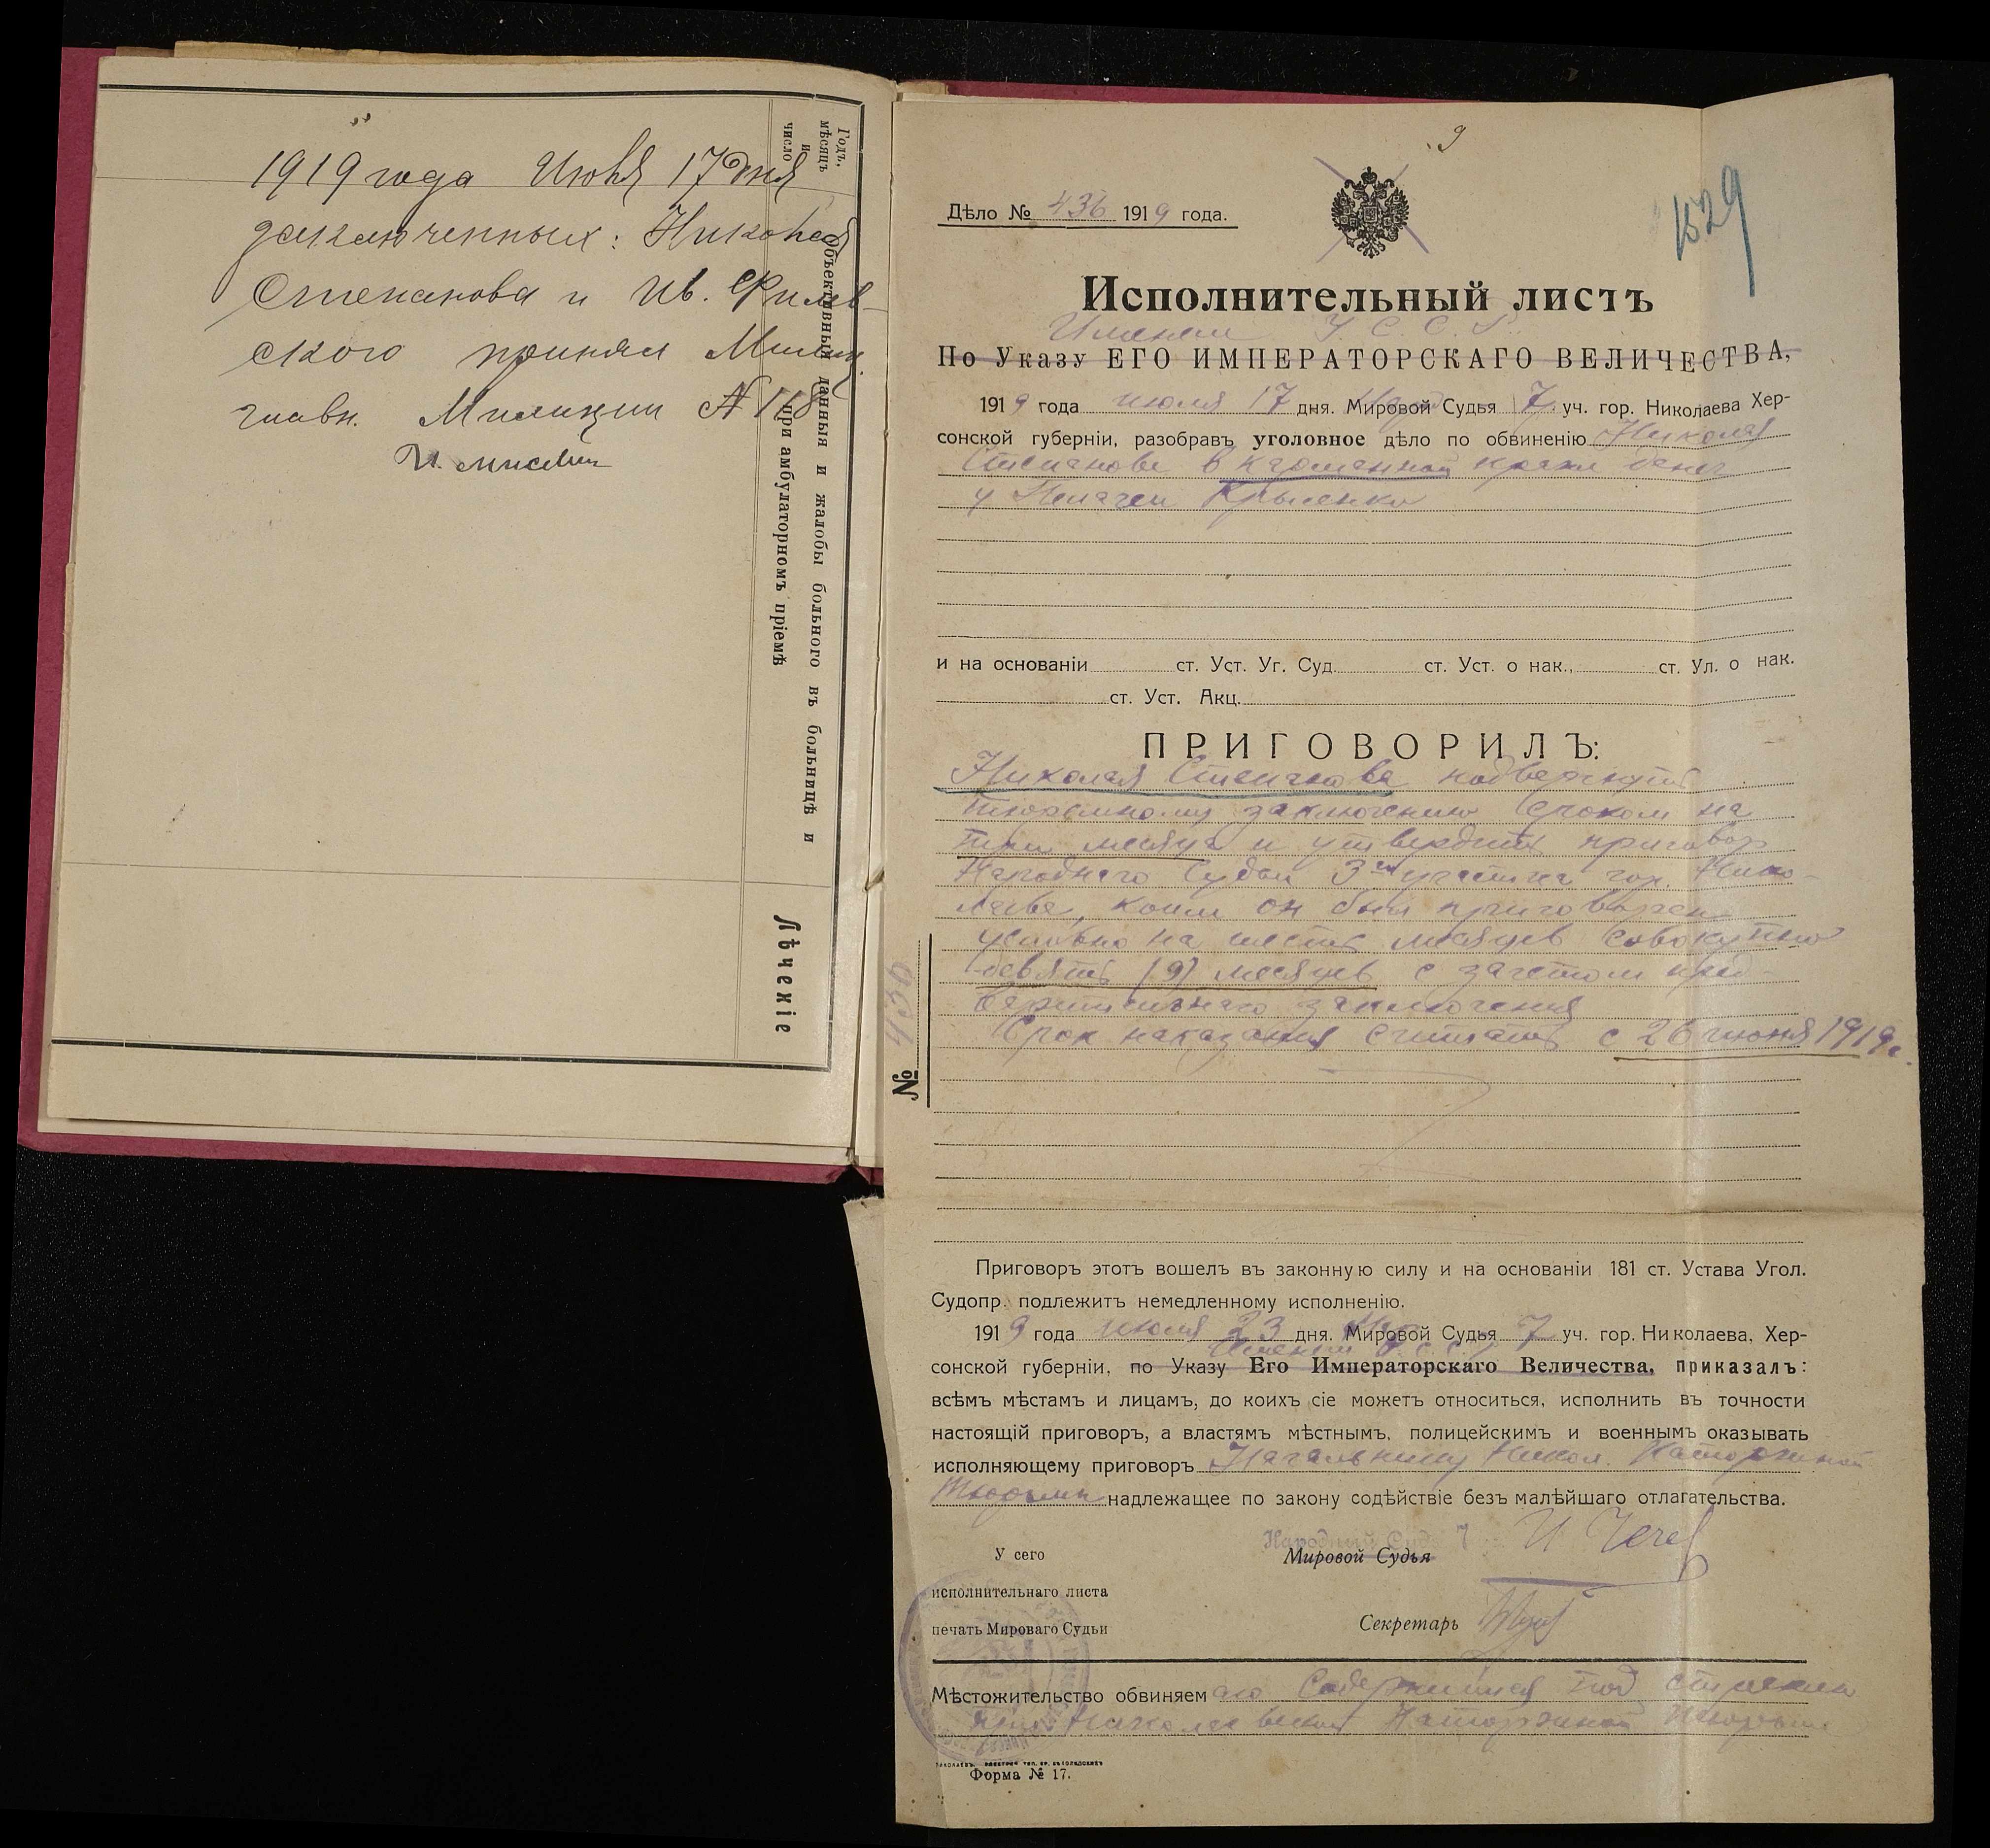 1919 года Июля 17 дня
заключенных: Николая
Степанова и Ив. Филев-
ского принял Милиц.
главн. Милиции № 118
Годъ,
мѣсяцъ
и
число
Объективныя данныя и жалобы больного въ больницѣ и
при амбулаторномъ пріемѣ
Лѣченіе
9
1529
Дѣло № 436 1919 года.
Исполнительный листъ
Именем У. С. С. Р.
По Указу ЕГО ИМПЕРАТОРСКАГО ВЕЛИЧЕСТВА,
1919 года июля 17 дня. Мировой Судья 7 уч. гор. Николаева Хер-
сонской губерніи, разобравъ уголовное дѣло по обвиненію Николая
Степанова в карманной краже денег
у Пелагеи Крыленко
и на основаніи ст. Уст. Уг. Суд. ст. Уст. о нак., ст. Ул. о нак.
ст. Уст. Акц.
ПРИГОВОРИЛЪ:
Николая Степанова подвергнуть
тюремному заключению сроком на
три месяца и утвердить приговор
Народнаго Судьи 3го участка гор. Нико-
лаева, коим он был приговорен
условно на шесть месяцев совокупно
девять (9) месяцев с зачетом пред-
варительнаго заключения
Срок наказания считать с 26 июня 1919 г.
№ 436
Приговоръ этотъ вошелъ въ законную силу и на основаніи 181 ст. Устава Угол.
Судопр. подлежитъ немедленному исполненію.
1919 года июля 23 дня. Нар. Мировой Судья 7 уч. гор. Николаева, Хер-
Именем У. С. С. Р.
сонской губерніи, по Указу Его Императорскаго Величества, приказалъ:
всѣмъ мѣстамъ и лицамъ, до коихъ сіе можетъ относиться, исполнить въ точности
настоящій приговоръ, а властямъ мѣстнымъ, полицейскимъ и военнымъ оказывать
исполняющему приговоръ Начальнику Никол. Каторжной
Тюрьмы надлежащее по закону содѣйствіе безъ малѣйшаго отлагательства.
Народный Суд 7
У сего Мировой Судья
исполнительнаго листа
печать Мироваго Судьи Секретарь
Мѣстожительство обвиняемаго Содержится под стражею
при Николаевской Каторжной тюрьме
Форма № 17.